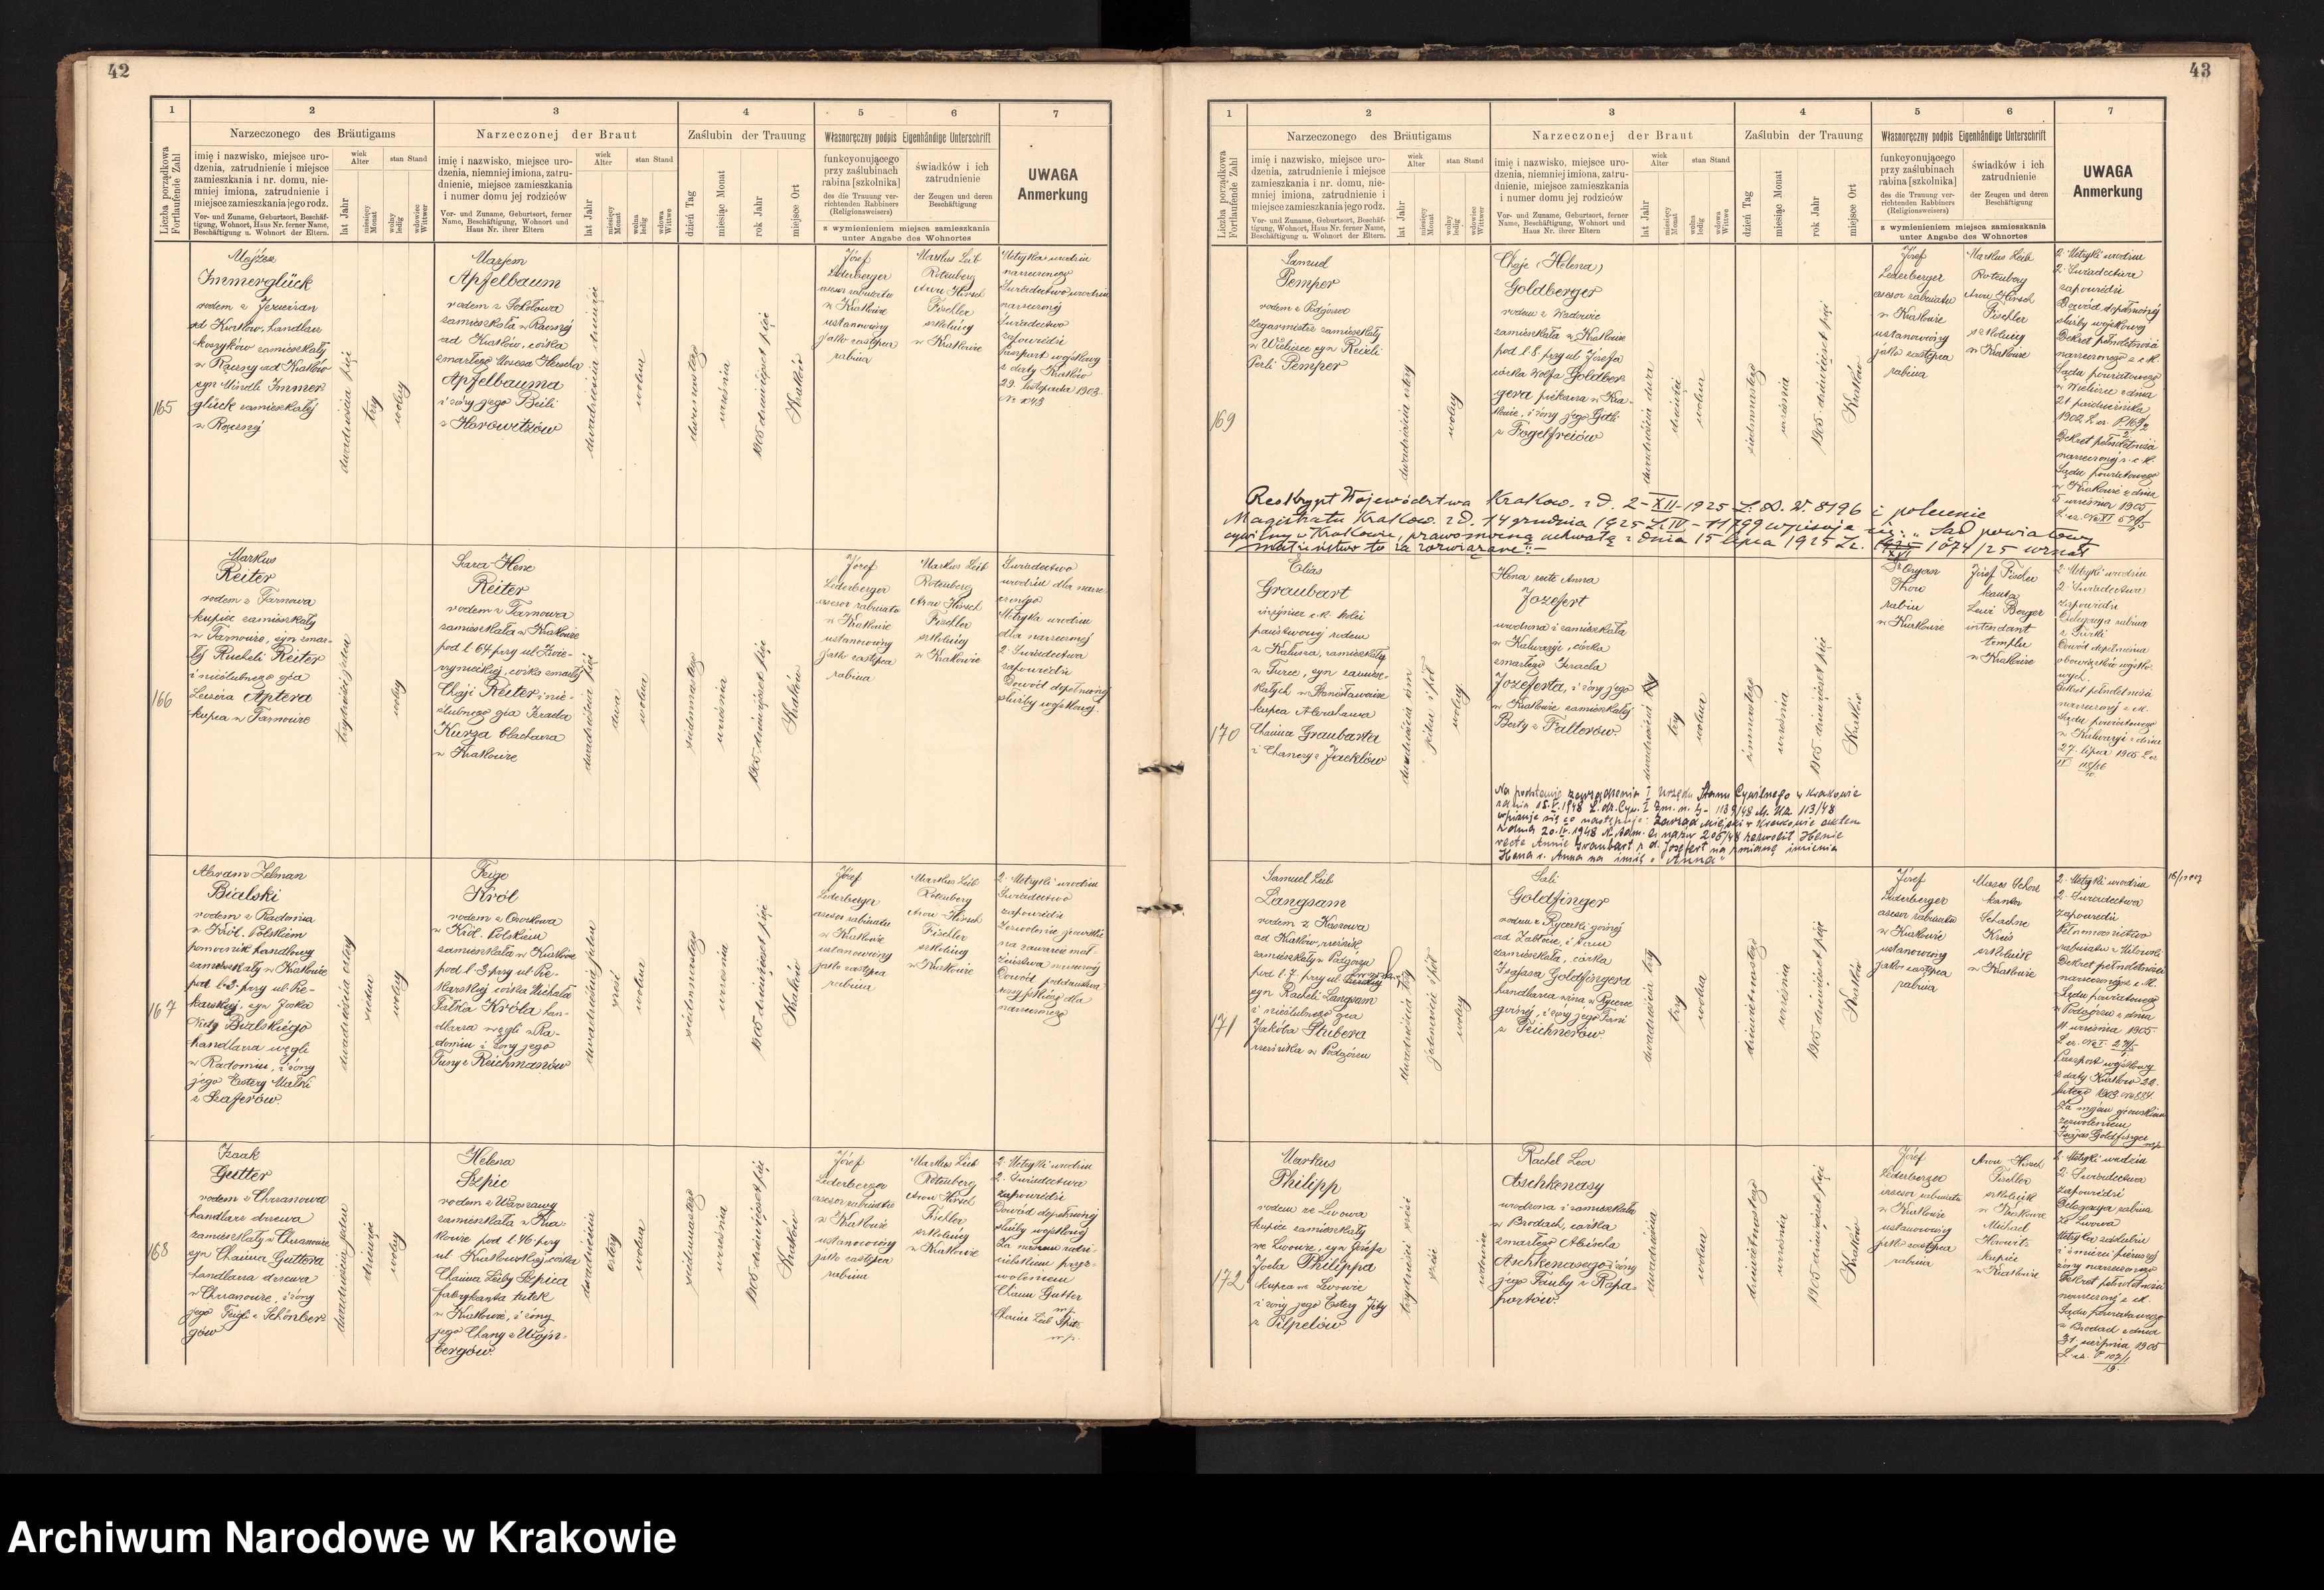 42
1
2
3
4
5
6
7
Liczba porządkowa
Fortlaufende Zahl
Narzeczonego des Bräutigams
imię i nazwisko, miejsce uro-
dzenia, zatrudnienie i miejsce
zamieszkania i nr. domu, nie-
mniej imiona, zatrudnienie i
miejsce zamieszkania jego rodz.
Vor- und Zuname, Geburtsort, Beschäf-
tigung, Wohnort, Haus Nr. ferner Name,
Beschäftigung u. Wohnort der Eltern.
wiek
Alter
stan Stand
lat Jahr
miesięcy
Monat
wolny
ledig
wdowiec
Wittwer
Narzeczonej der Braut
imię i nazwisko, miejsce uro-
dzenia, niemniej imiona, zatru-
dnienie, miejsce zamieszkania
i numer domu jej rodziców
Vor- und Zuname, Geburtsort, ferner
Name, Beschäftigung, Wohnort und
Haus Nr. ihrer Eltern
wiek
Alter
stan Stand
lat Jahr
miesięcy
Monat
wolna
ledig
wdowa
Wittwe
Zaślubin der Trauung
dzień Tag
miesiąc Monat
rok Jahr
miejsce Ort
Własnoręczny podpis Eigenhändige Unterschrift
funkcyonującego
przy zaślubinach
rabina [szkolnika]
des die Trauung ver-
richtenden Rabbiners
(Religionsweisers)
świadków i ich
zatrudnienie
der Zeugen und deren
Beschäftigung
z wymienieniem miejsca zamieszkania
unter Angabe des Wohnortes
UWAGA
Anmerkung
165
Mojżesz
Immerglück
ad Kraków, handlarz
koszyków zamieszkały
syn Mindli Immer
glück zamieszkałej
dwadzieścia pięć
trzy
wolny
Marjem
Apfelbaum
rodem z Sokołowa
ad Kraków, córka
Apfelbauma
i żony jego Beili
z Horowitzów
wolna
września
1905 dziewięćset pięć
Kraków
Józef
Lederberger
asesor rabinatu
w Krakowie
ustanowiony
jako zastępca
rabina
Markus Leib
Rotenberg
Aron Hirsch
Fischler
szkolnicy
w Krakowie
Metryka urodzin
narzeczonego
Świadectwo urodzin
narzeczonej
Świadectwo
zapowiedzi
Paszport wojskowy
z daty Kraków
29. listopada 1903
166
Markus
Reiter
rodem z Tarnowa
kupiec zamieszkały
w Tarnowie, syn zmar-
łej Rucheli Reiter
i nieślubnego ojca
Leisera Aptera
kupca w Tarnowie
trzydzieści jeden
wolny
Sara Hene
Reiter
rodem z Tarnowa
zamieszkała w Krakowie
pod l. 64 przy ul. Zwie-
rzynieckiej, córka zmarłej
Chaji Reiter i nie-
ślubnego ojca Izraela
Kurza blacharza
w Krakowie
dwadzieścia pięć
dwa
wolna
siedmnastego
września
1905 dziewięćset pięć
Kraków
Józef
Lederberger
asesor rabinatu
w Krakowie
ustanowiony
jako zastępca
rabina
Markus Leib
Rotenberg
Aron Hirsch
Fischler
szkolnicy
w Krakowie
Świadectwo
urodzin dla narze-
czonego
Metryka urodzin
dla narzeczonej
2 Świadectwa
zapowiedzi
Dowód dopełnionej
służby wojskowej.
167
Abram Zelman
Bialski
rodem z Radomia
w Król. Polskiem
pomocnik handlowy
zamieszkały w Krakowie
pod l. 3 przy ul. Pie-
karskiej, syn Joska
Bialskiego
handlarza węgli
w Radomiu, i żony
jego Estery Małki
z Szaferów.
dwadzieścia cztery
siedm
wolny
Feige
Król
rodem z Ozorkowa
w Król. Polskiem
zamieszkała w Krakowie
pod l. 3 przy ul. Pie-
karskiej córka Michała
Fałka Króla han-
dlarza węgli w Ra-
domiu i żony jego
z Reichmanów
dwadzieścia jeden
sześć
wolna
siedmnastego
września
1905 dziewięćset pięć
Kraków
Józef
Lederberger
asesor rabinatu
w Krakowie
ustanowiony
jako zastępca
rabina
Markus Leib
Rotenberg
Aron Hirsch
Fischler
szkolnicy
w Krakowie
2 Metryki urodzin
Świadectwo
zapowiedzi
Zezwolenie ojcowskie
na zawarcie mał-
żeństwa narzeczonej
Dowód poddaństwa
rosyjskiego dla
narzeczonego
168
Izaak
Gutter
rodem z Chrzanowa
handlarz drzewa
zamieszkały w Chrzanowie
syn Chaima Guttera
handlarza drzewa
w Chrzanowie, i żony
jego Feigli z Schönber
gów
dwadzieścia jeden
dziewięć
wolny
Helena
Szpic
rodem z Warszawy
zamieszkała w Kra-
kowie pod l. 46 przy
ul. Krakowskiej córka
Chaima Leiby Szpica
fabrykanta tutek
w Krakowie, i żony
jego Chany z Wajn-
bergów.
dwadzieścia
cztery
wolna
siedmnastego
września
1905 dziewięćset pięć
Kraków
Józef
Lederberger
asesor rabinatu
w Krakowie
ustanowiony
jako zastępca
rabina
Markus Leib
Rotenberg
Aron Hirsch
Fischler
szkolnicy
w Krakowie
2 Metryki urodzin
2 Świadectwa
zapowiedzi
Dowód dopełnionej
służby wojskowej
Za mojem rodzi-
cielskiem przyz-
woleniem
Chaim Gutter
mp.
Chaim Leib Spitz
mp.
43
1
2
3
4
5
6
7
Liczba porządkowa
Fortlaufende Zahl
Narzeczonego des Bräutigams
imię i nazwisko, miejsce uro-
dzenia, zatrudnienie i miejsce
zamieszkania i nr. domu, nie-
mniej imiona, zatrudnienie i
miejsce zamieszkania jego rodz.
Vor- und Zuname, Geburtsort, Beschäf-
tigung, Wohnort, Haus Nr. ferner Name,
Beschäftigung u. Wohnort der Eltern.
wiek
Alter
stan Stand
lat Jahr
miesięcy
Monat
wolny
ledig
wdowiec
Wittwer
Narzeczonej der Braut
imię i nazwisko, miejsce uro-
dzenia, niemniej imiona, zatru-
dnienie, miejsce zamieszkania
i numer domu jej rodziców
Vor- und Zuname, Geburtsort, ferner
Name, Beschäftigung, Wohnort und
Haus Nr. ihrer Eltern
wiek
Alter
stan Stand
lat Jahr
miesięcy
Monat
wolna
ledig
wdowa
Wittwe
Zaślubin der Trauung
dzień Tag
miesiąc Monat
rok Jahr
miejsce Ort
Własnoręczny podpis Eigenhändige Unterschrift
funkcyonującego
przy zaślubinach
rabina [szkolnika]
des die Trauung ver-
richtenden Rabbiners
(Religionsweisers)
świadków i ich
zatrudnienie
der Zeugen und deren
Beschäftigung
z wymienieniem miejsca zamieszkania
unter Angabe des Wohnortes
UWAGA
Anmerkung
169
Samuel
Pemper
rodem z Podgórza
zegarmistrz zamieszkały
w Wieliczce syn Reizli
Perli Pemper
dwadzieścia cztery
wolny
Chaje (Helena)
Goldberger
rodem z Wadowic
zamieszkała w Krakowie
pod l. 8. przy ul. Józefa
córka Wolfa Goldber
gera piekarza w Kra-
kowie, i żony jego Gitli
z Fogelfreiów
dwadzieścia dwa
dziewięć
wolna
siedmnastego
września
1905 dziewięćset pięć
Kraków
Józef
Lederberger
asesor rabinatu
w Krakowie
ustanowiony
jako zastępca
rabina
Markus Leib
Rotenberg
Aron Hirsch
Fischler
szkolnicy
w Krakowie
2 Metryki urodzin
2 Świadectwa
zapowiedzi
Dowód dopełnionej
służby wojskowej
Dekret pełnoletności
narzeczonego c. k.
Sądu powiatowego
w Wieliczce z dnia
21 października
1902
Dekret pełnoletności
narzeczonej c. k.
Sądu powiatowego
w Krakowie z dnia
5 września 1905
Reskrypt Województwa Krakow. z d. 2-XII-1925 L. 8196 i polecenie
Magistratu Krakow. z d. 14 grudnia 1925 L. IV-11799 wpisuje się: „Sąd powiatowy
cywilny w Krakowie, prawomocną uchwałą z dnia 15 lipca 1925 1074/25 uznał
małżeństwo to za rozwiązane".-
170
Elias
Graubart
inżynier c. k. kolei
państwowej rodem
z Kałusza, zamieszkały
w Turce, syn zamiesz-
kałych w Stanisławowie
kupca Abrahama
Chaima Graubarta
i Chanczy z Jäcklów
dwadzieścia ośm
jeden i pół
wolny
Hena recte Anna
Jozefert
urodzona i zamieszkała
w Kalwaryi, córka
zmarłego Izraela
Jozeferta, i żony jego
w Krakowie zamieszkałej
Berty z Fallerów.
dwadzieścia trzy
trzy
wolna
września
1905 dziewięćset pięć
Kraków
Thon
rabin
w Krakowie
Józef Fischer
Lewi Berger
intendant
templu
w Krakowie
2 Metryki urodzin
2 Świadectwa
zapowiedzi
Delegacya rabina
z Turki
Dowód dopełnienia
obowiązków wojsko-
wych.
Dekret pełnoletności
narzeczonej c. k.
Sądu powiatowego
w Kalwaryi z dnia
27. lipca 1905
Na podstawie zarządzenia I Urzędu Stanu Cywilnego w Krakowie
z dnia 15.V.1948
wpisuje się co następuje: Zarząd miejski w Krakowie aktem
z dnia 20.IV.1948 zezwolił Henie
recte Annie Graubart z d. Jozefert na zmianę imienia
Hena r. Anna na imię „Anna"
171
Samuel Leib
Langsam
rodem z Kaszowa
ad Kraków, rzeźnik
zamieszkały w Podgórzu
pod l. 7. przy ul.
syn Racheli Langsam
i nieślubnego ojca
Jakóba Stubera
rzeźnika w Podgórzu
dwadzieścia trzy
jedenaście i pół
wolny
Sali
Goldfinger
rodem z Rycerki górnej
ad Zabłocie, i tam
zamieszkała, córka
Izajasa Goldfingera
handlarza wina w Rycerce
górnej, i żony jego Fani
z Teichnerów.
dwadzieścia trzy
trzy
wolna
dziewiętnastego
września
1905 dziewięćset pięć
Kraków
Józef
Lederberger
asesor rabinatu
w Krakowie
ustanowiony
jako zastępca
rabina
Moses Schorr
kantor
Schachne
Kreis
szkolnik
w Krakowie
2 Metryki urodzin
2 Świadectwa
zapowiedzi
Pełnomocnictwo
rabinatu z Milówki
Dekret pełnoletności
narzeczonego c. k.
Sądu powiatowego
w Podgórzu z dnia
11 września 1905
Paszport wojskowy
z daty Kraków 22.
lutego 1903
Za mojem ojcowskiem
zezwoleniem
Izajas Goldfinger
mp.
172
Markus
Philipp
rodem ze Lwowa
kupiec zamieszkały
we Lwowie, syn Józefa
Joela Philippa
kupca we Lwowie
i żony jego Estery Jity
z Pilpelów
trzydzieści sześć
sześć
wdowiec
Rachel Lea
Aschkenasy
urodzona i zamieszkała
w Brodach, córka
zmarłego Abischa
Aschkenasego i żony
jego Tauby z Rapa-
portów.
dwadzieścia
wolna
dziewiętnastego
września
1905 dziewięćset pięć
Kraków
Józef
Lederberger
asesor rabinatu
w Krakowie
ustanowiony
jako zastępca
rabina
Aron Hirsch
Fischler
szkolnik
w Krakowie
Michael
Horowitz
kupiec
w Krakowie
2 Metryki urodzin
2 Świadectwa
zapowiedzi
Delegacya rabina
ze Lwowa
Metryka zaślubin
i śmierci pierwszej
żony narzeczonego
Dekret pełnoletności
narzeczonej c. k.
Sądu powiatowego
w Brodach z dnia
31. sierpnia 1905
Archiwum Narodowe w Krakowie